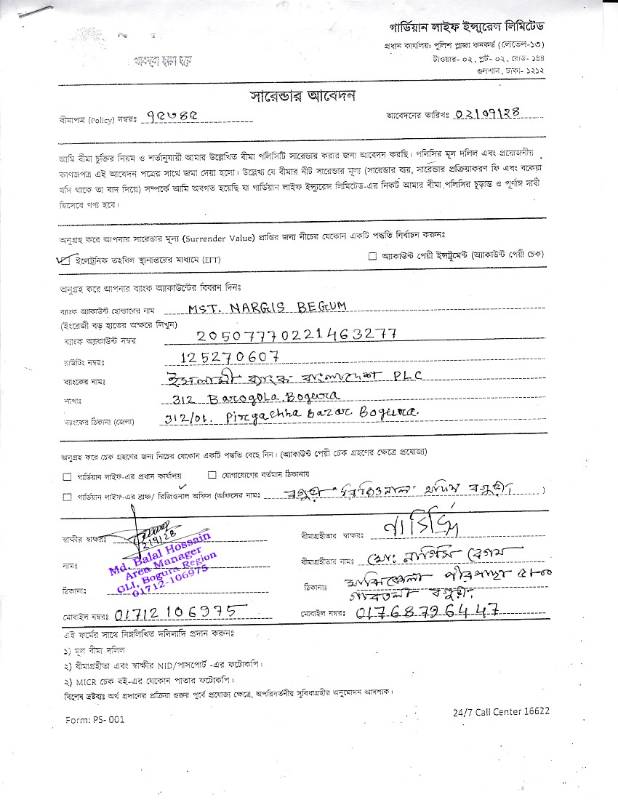 গার্ডিয়ান লাইফ ইন্স্যুরেন্স লিমিটেড
প্রধান কার্যালয়: পুলিশ প্লাজা কনকর্ড (লেভেল-১৩)
টাওয়ার- ০২, প্লট- ০২, রোড- ১৪৪
গুলশান, ঢাকা- ১২১২
সারেন্ডার আবেদন
বীমাপত্র (Policy) নম্বরঃ
আবেদনের তারিখঃ
আমি বীমা চুক্তির নিয়ম ও শর্তানুযায়ী আমার উল্লেখিত বীমা পলিসিটি সারেন্ডার করার জন্য আবেদন করছি। পলিসির মূল দলিল এবং প্রয়োজনীয়
কাগজপত্র এই আবেদন পত্রের সাথে জমা দেয়া হলো। উল্লেখ্য যে বীমার নীট সারেন্ডার মূল্য (সারেন্ডার ব্যয়, সারেন্ডার প্রক্রিয়াকরণ ফি এবং বকেয়া
যদি থাকে তা বাদ দিয়ে) সম্পর্কে আমি অবগত হয়েছি যা গার্ডিয়ান লাইফ ইন্স্যুরেন্স লিমিটেড-এর নিকট আমার বীমা পলিসির চূড়ান্ত ও পূর্ণাঙ্গ দাবী
হিসেবে গণ্য হবে।
অনুগ্রহ করে আপনার সারেন্ডার মূল্য (Surrender Value) প্রাপ্তির জন্য নীচের যেকোন একটি পদ্ধতি নির্বাচন করুনঃ
ইলেক্ট্রনিক তহবিল স্থানান্তরের মাধ্যমে (EFT) অ্যাকাউন্ট পেয়ী ইন্সট্রুমেন্ট (অ্যাকাউন্ট পেয়ী চেক)
অনুগ্রহ করে আপনার ব্যাংক অ্যাকাউন্টের বিবরন দিনঃ
ব্যাংক অ্যাকাউন্ট হোল্ডারের নাম MST. NARGIS BEGUM
(ইংরেজী বড় হাতের অক্ষরে লিখুন)
ব্যাংক অ্যাকাউন্ট নম্বর 20507770221463277
রাউটিং নম্বরঃ 125270607
ব্যাংকের নামঃ ইসলামী ব্যাংক বাংলাদেশ PLC
শাখাঃ 312 Barogola Bogura
ব্যাংকের ঠিকানা (জেলা) 312/01. Pirgachha Bazar Bogura.
অনুগ্রহ করে চেক গ্রহণের জন্য নিচের যেকোন একটি পদ্ধতি বেছে নিন। (অ্যাকাউন্ট পেয়ী চেক গ্রহণের ক্ষেত্রে প্রযোজ্য)
গার্ডিয়ান লাইফ-এর প্রধান কার্যালয় যোগাযোগের বর্তমান ঠিকানায়
গার্ডিয়ান লাইফ-এর ব্রাঞ্চ/ রিজিওনাল অফিস (অফিসের নামঃ )
স্বাক্ষীর স্বাক্ষরঃ
বীমাগ্রহীতার স্বাক্ষরঃ নার্গিস
Md. Balal Hossain
Area Manager
GLI, Bogura Region
01712-106975
নামঃ
বীমাগ্রহীতার নামঃ মোছাঃ নার্গিস বেগম
ঠিকানাঃ
ঠিকানাঃ
মোবাইল নম্বরঃ 01712106975
মোবাইল নম্বরঃ 01768796447
এই ফর্মের সাথে নিম্নলিখিত দলিলাদি প্রদান করুনঃ
১) মূল বীমা দলিল
২) বীমাগ্রহীতা এবং স্বাক্ষীর NID/পাসপোর্ট -এর ফটোকপি।
২) MICR চেক বই-এর যেকোন পাতার ফটোকপি।
বিশেষ দ্রষ্টব্যঃ অর্থ প্রদানের প্রক্রিয়া শুরুর পূর্বে প্রযোজ্য ক্ষেত্রে, অপরিবর্তনীয় সুবিধাগ্রহীর অনুমোদন আবশ্যক।
Form: PS- 001
24/7 Call Center 16622